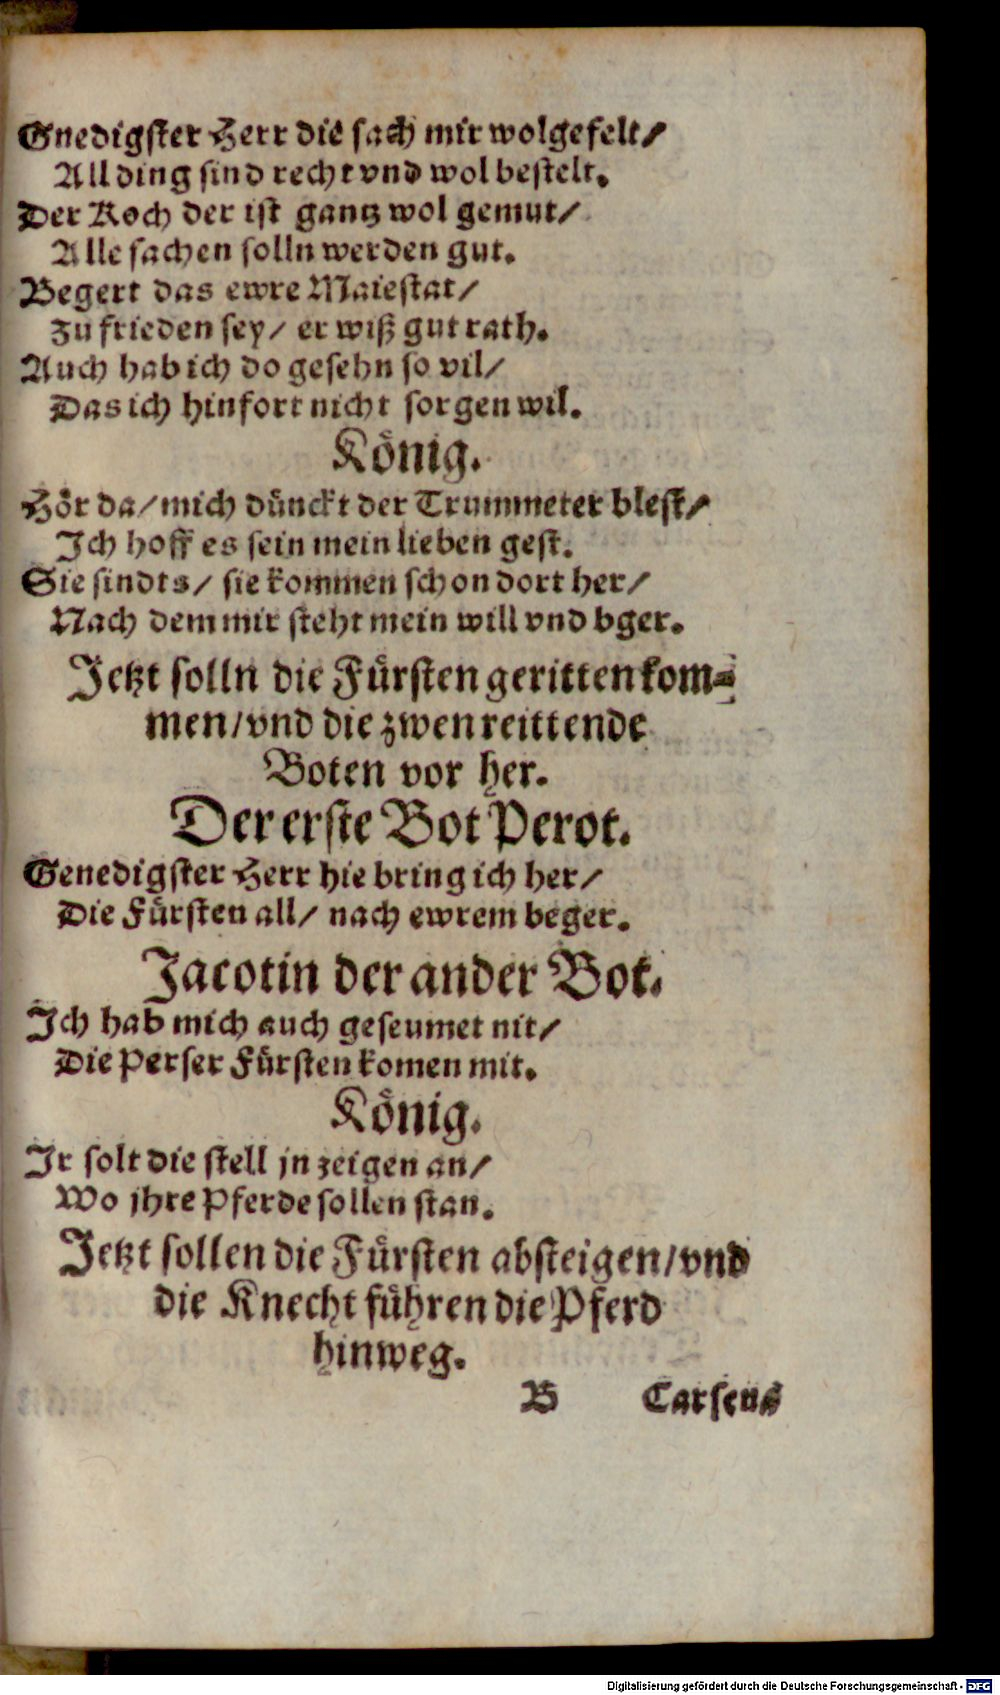 Gnedigster Herr die sach mir wolgefelt/
All ding sind recht vnd wol bestelt.
Der Koch der ist gantz wol gemut/
Alle sachen solln werden gut.
Begert das ewre Maiestat/
zu frieden sey/ er wiß gut rath.
Auch hab ich do gesehn so vil/
Das ich hinfort nicht sorgen wil.
König.
Hör da/ mich dünckt der Trummeter blest/
Ich hoff es sein mein lieben gest.
Sie sindts/ sie kommen schon dort her/
Nach dem mir steht mein will vnd bger.
Jetzt solln die Fürsten geritten kom-
men/ vnd die zwen reittende
Boten vor her.
Der erste Bot Perot.
Genedigster Herr hie bring ich her/
Die Fürsten all/ nach ewrem beger.
Jacotin der ander Bot.
Ich hab mich auch geseumet nit/
Die Perser Fürsten komen mit.
König.
Ir solt die stell jn zeigen an/
Wo jhre Pferde sollen stan.
Jetzt sollen die Fürsten absteigen/ vnd
die Knecht führen die Pferd
hinweg.
B Carsena
Digitalisierung gefördert durch die Deutsche Forschungsgemeinschaft - DFG